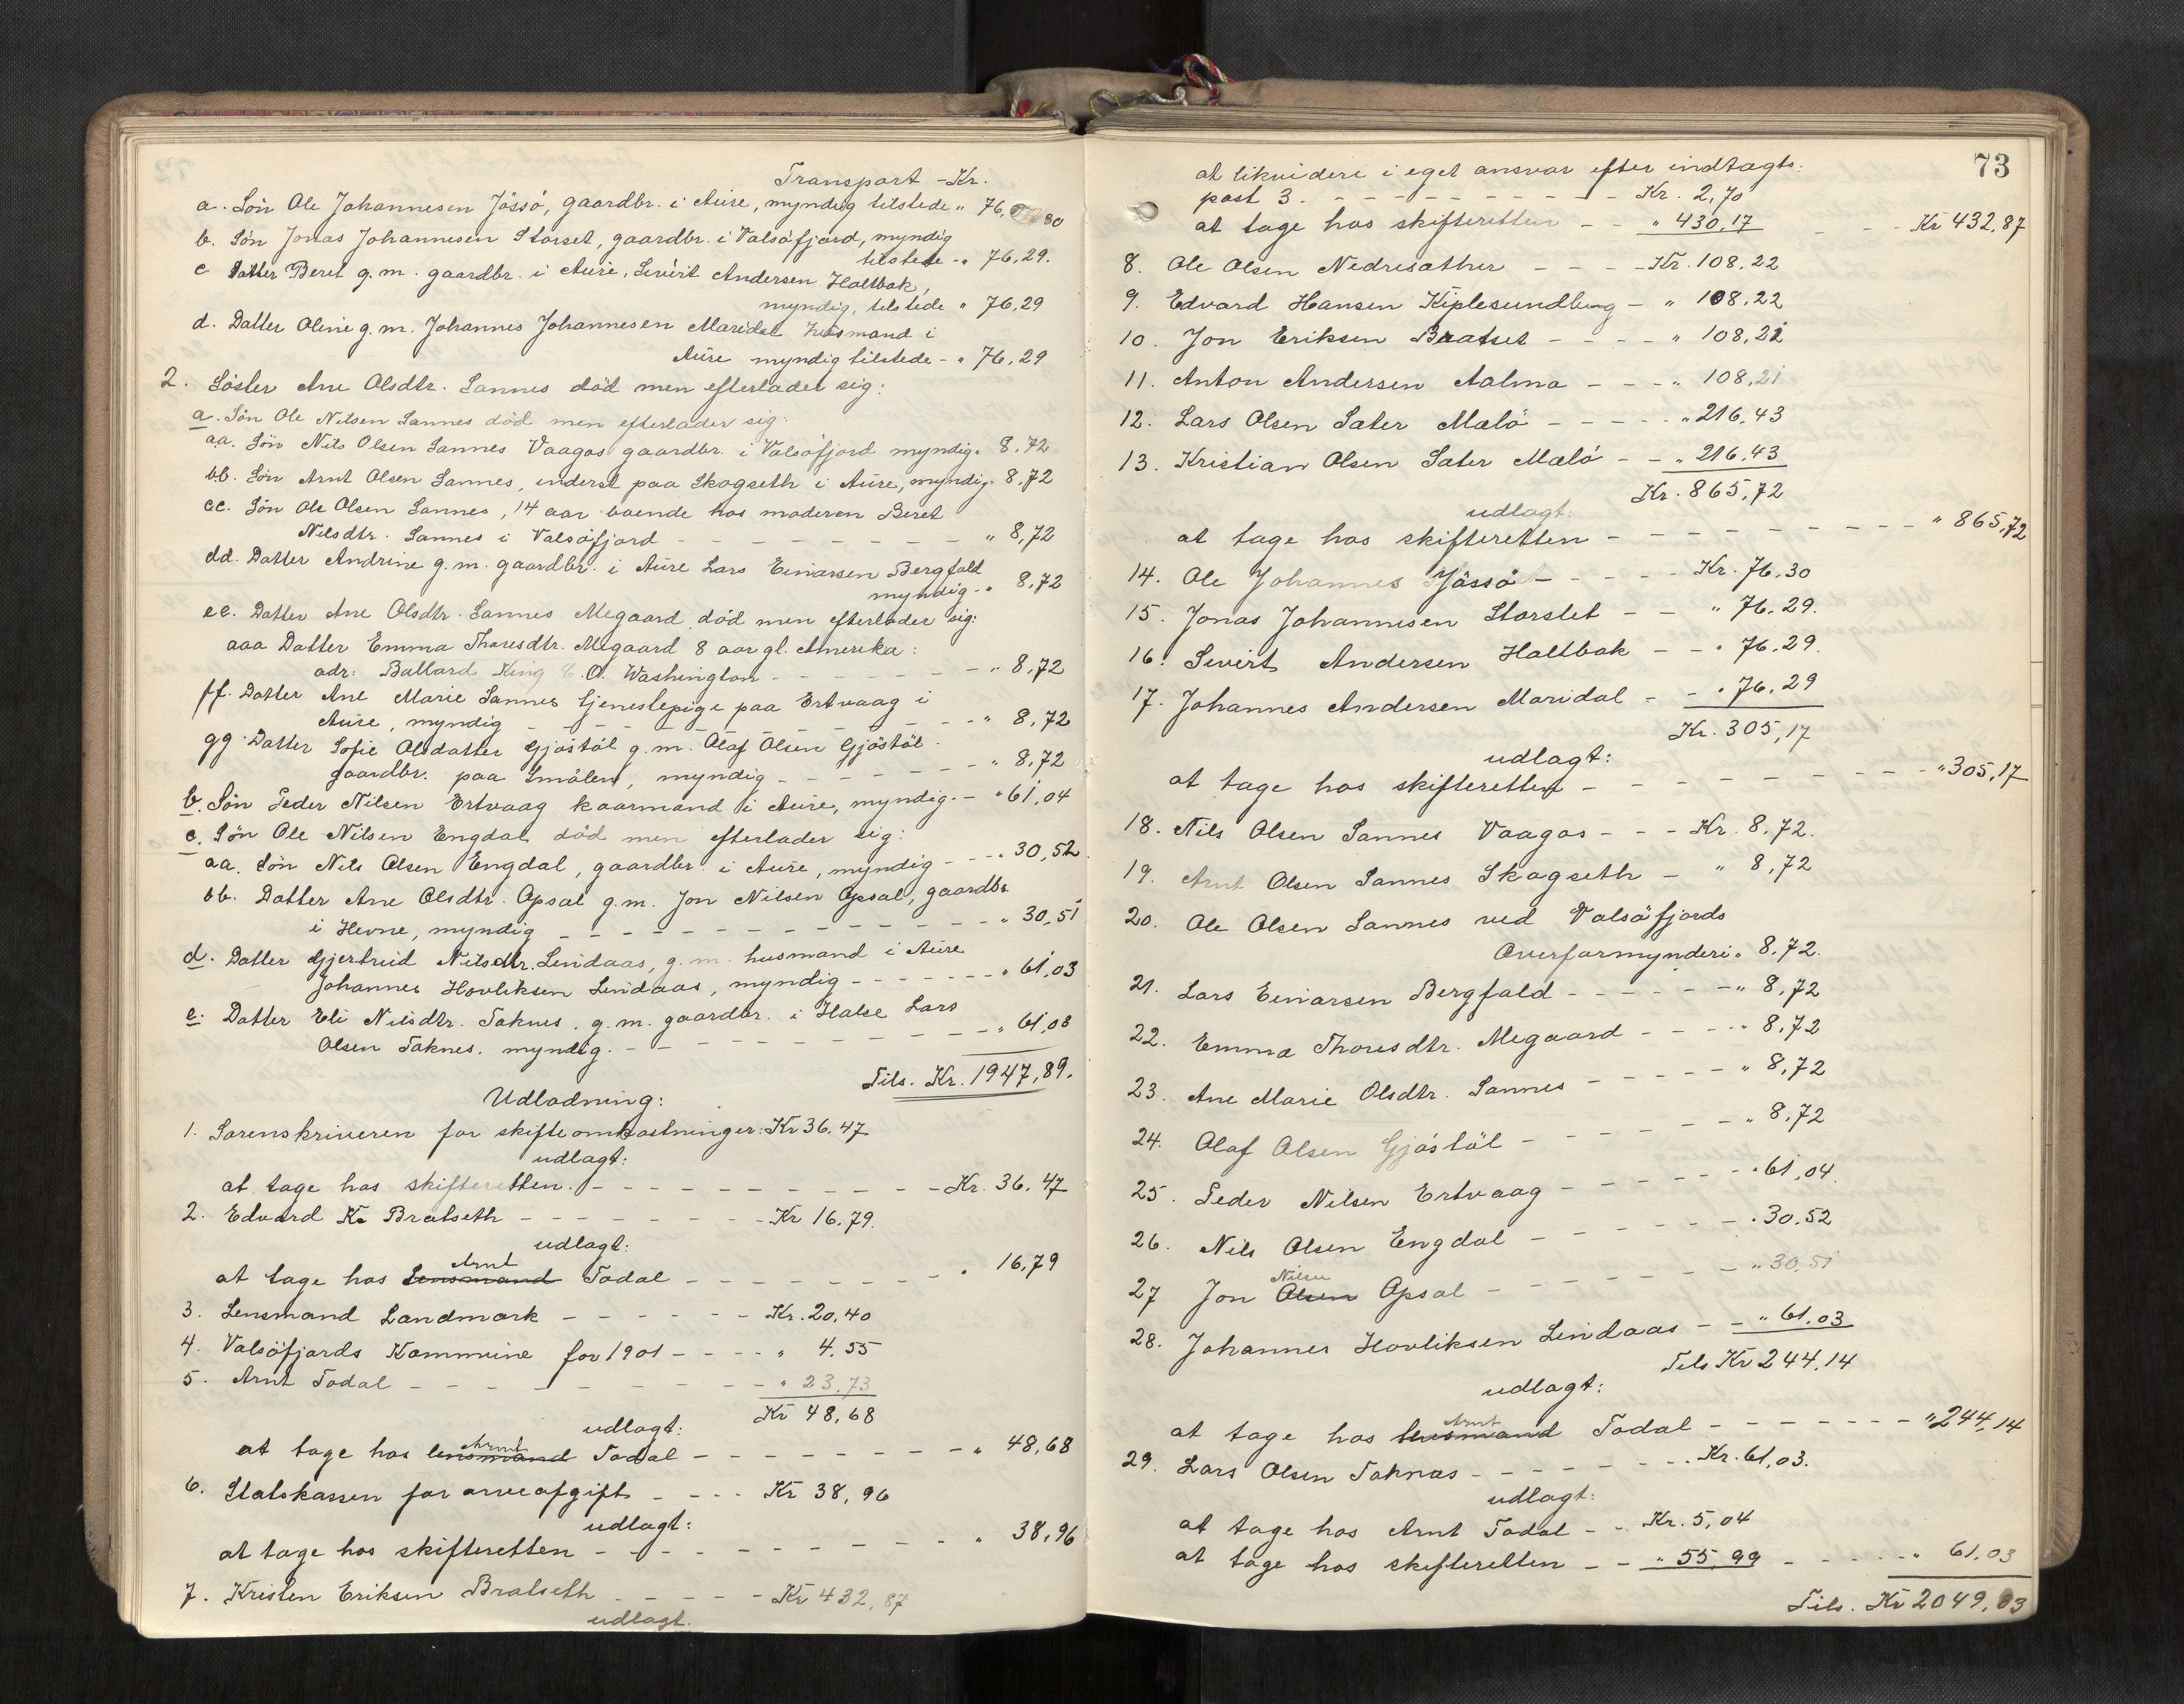 Transport - Kr.
a. Søn Ole Johannesen Jössö, gaardbr. i Aure, myndig tilstede " 76, 30
b. Søn Jonas Johannesen Storset, gaardbr. i Valsöfjord, myndig
tilstede - " 76,29.
c Datter Beret g. m. gaardbr. i Aure, Sivert Andersen Holtbak,
myndig, tilstede " 76,29
d. Datter Oline g. m. Johannes Johannesen Maridal husmand i
Aure myndig tilstede - " 76,29
2. Söster Ane Olsdtr. Sannes död men efterlader sig:
a. Søn Ole Nilsen Sannes död men efterlader sig:
aa. Søn Nils Olsen Sannes Vaagos gaardbr. i Valsöfjord myndig " 8,72
bb. Søn Arnt Olsen Sannes, inderst paa Skogseth i Aure, myndig " 8,72
cc. Søn Ole Olsen Sannes, 14 aar boende hos moderen Beret
Nilsdtr. Sannes i Valsöfjord - - - - - - - " 8,72
dd. Datter Andrine g. m. gaardbr. i Aure Lars Einarsen Bergfald
myndig - " 8,72
ee. Datter Ane Olsdtr. Sannes Megaard död men efterlader sig:
aaa Datter Emma Thoresdtr. Megaard 8 aar gl. Amerika:
adr: Ballard King C. O. Washington - - - - - - - " 8,72
ff. Datter Ane Marie Sannes tjenestepige paa Ertvaag i
Aure, myndig - - - - - - - - - " 8,72
gg. Datter Sofie Olsdatter Gjöstöl g. m. Olaf Olsen Gjöstöl
gaardbr. paa Smölen, myndig - - - - - - " 8,72
b. Søn Peder Nilsen Ertvaag kaarmand i Aure, myndig. - " 61,04
c. Søn Ole Nilsen Engdal död men efterlader sig:
aa. Søn Nils Olsen Engdal, gaardbr. i Aure, myndig - - - " 30,52
bb. Datter Ane Olsdtr. Opsal g. m. Jon Nilsen Opsal, gaardbr
i Hevne, myndig - - - - - - - - - - " 30,51
d. Datter Gjertrud Nilsdtr. Lindaas, g. m. husmand i Aure
Johannes Hovliksen Lindaas, myndig - - - - - - " 61,03
e. Datter Eli Nilsdtr. Taknes. g. m. gaardbr. i Halse Lars
Olsen Taknes. myndig. - - - - - - - - - " 61,03
Tils. Kr. 1947,89.
Udlodning:
1. Sorenskriveren for skifteomkostninger: Kr 36,47
udlagt:
at tage hos skifteretten. - - - - - - - - - Kr. 36,47
2. Edvard K. Bratseth - - - - - - - Kr 16,79.
udlagt:
Arnt
at tage hos Lensmand Todal - - - - - - - - " 16,79
3. Lensmand Landmark - - - - - Kr. 20,40
4. Valsöfjords Kommune for 1901 - - - - " 4,55
5. Arnt Todal - - - - - - - - - " 23,73
Kr 48,68
udlagt:
Arnt
at tage hos lensmand Todal - - - - - - - - " 48,68
6. Statskassen for arveafgift - - - - Kr 38,96
udlagt:
at tage hos skifteretten - - - - - - - - - " 38,96
7. Kristen Eriksen Bratseth - - - - - Kr 432,87
udlagt.
73
at likvidere i eget ansvar efter indtægts.
post 3. - - - - - - - - - - Kr. 2,70
at tage hos skifteretten - - " 430,17 - - - Kr 432,87
8. Ole Olsen Nedresæther - - - - Kr. 108,22
9. Edvard Hansen Kiplesundberg - " 108,22
10. Jon Eriksen Bratset - - - - " 108,21
11. Anton Andersen Aalmo - - - " 108,21
12. Lars Olsen Sæter Malö - - - - - " 216,43
13. Kristian Olsen Sæter Malö - - " 216,43
Kr. 865,72
udlagt:
at tage hos skifteretten - - - - - - - - - - " 865,72
14. Ole Johannes Jössö - - - - - Kr. 76,30
15. Jonas Johannesen Storslet - - " 76,29.
16. Sivert Andersen Holtbak - - " 76,29.
17. Johannes Andersen Maridal - - " 76,29
Kr. 305,17
udlagt:
at tage hos skifteretten - - - - - - - - - - " 305,17
18. Nils Olsen Sannes Vaagos - - - Kr. 8,72.
19. Arnt Olsen Sannes Skogseth - " 8,72
20. Ole Olsen Sannes ved Valsöfjords
Overformynderi " 8,72.
21. Lars Einarsen Bergfald - - - - - - " 8,72
22. Emma Thoresdtr. Megaard - - - - " 8,72
23. Ane Marie Olsdtr. Sannes - - - - - " 8,72
24. Olaf Olsen Gjöstöl - - - - - - " 8,72
25. Peder Nilsen Ertvaag - - - - - - " 61,04.
26. Nils Olsen Engdal - - - - - - " 30,52
Nilsen
27 Jon Olsen Opsal - - - - - - - " 30,51
28. Johannes Hovliksen Lindaas - - " 61,03
Tils Kr 244,14
udlagt:
Arnt
at tage hos lensmand Todal - - - - - - - " 244,14
29. Lars Olsen Taknas - - - - - - - Kr. 61,03.
udlagt:
at tage hos Arnt Todal - - Kr. 5,04
at tage hos skifteretten - - " 55,99 - - - - - " 61,03
Tils. Kr 2049,03